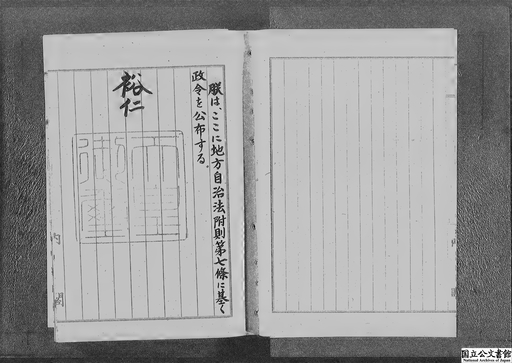 朕は、ここに地方自治法附則第七條に基く
政令を公布する。
裕仁
天皇御璽
内閣
内閣
国立公文書館
National Archives of Japan